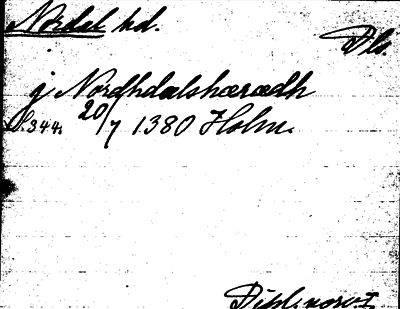 Nordal hd.
Dls.
j Nordhdalshæredh
S. 344. 20/7 1380 Holm.
Dipl. norv. I.